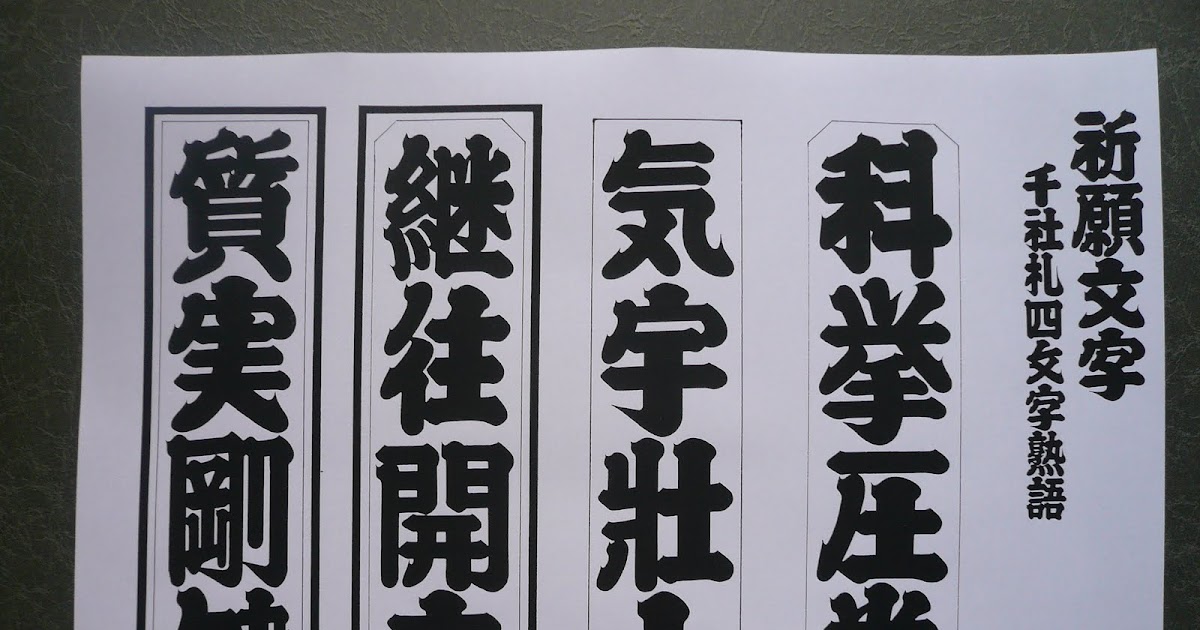 祈願文字
千社札四文字熟語
科挙圧
気宇壯
継往開
質実剛